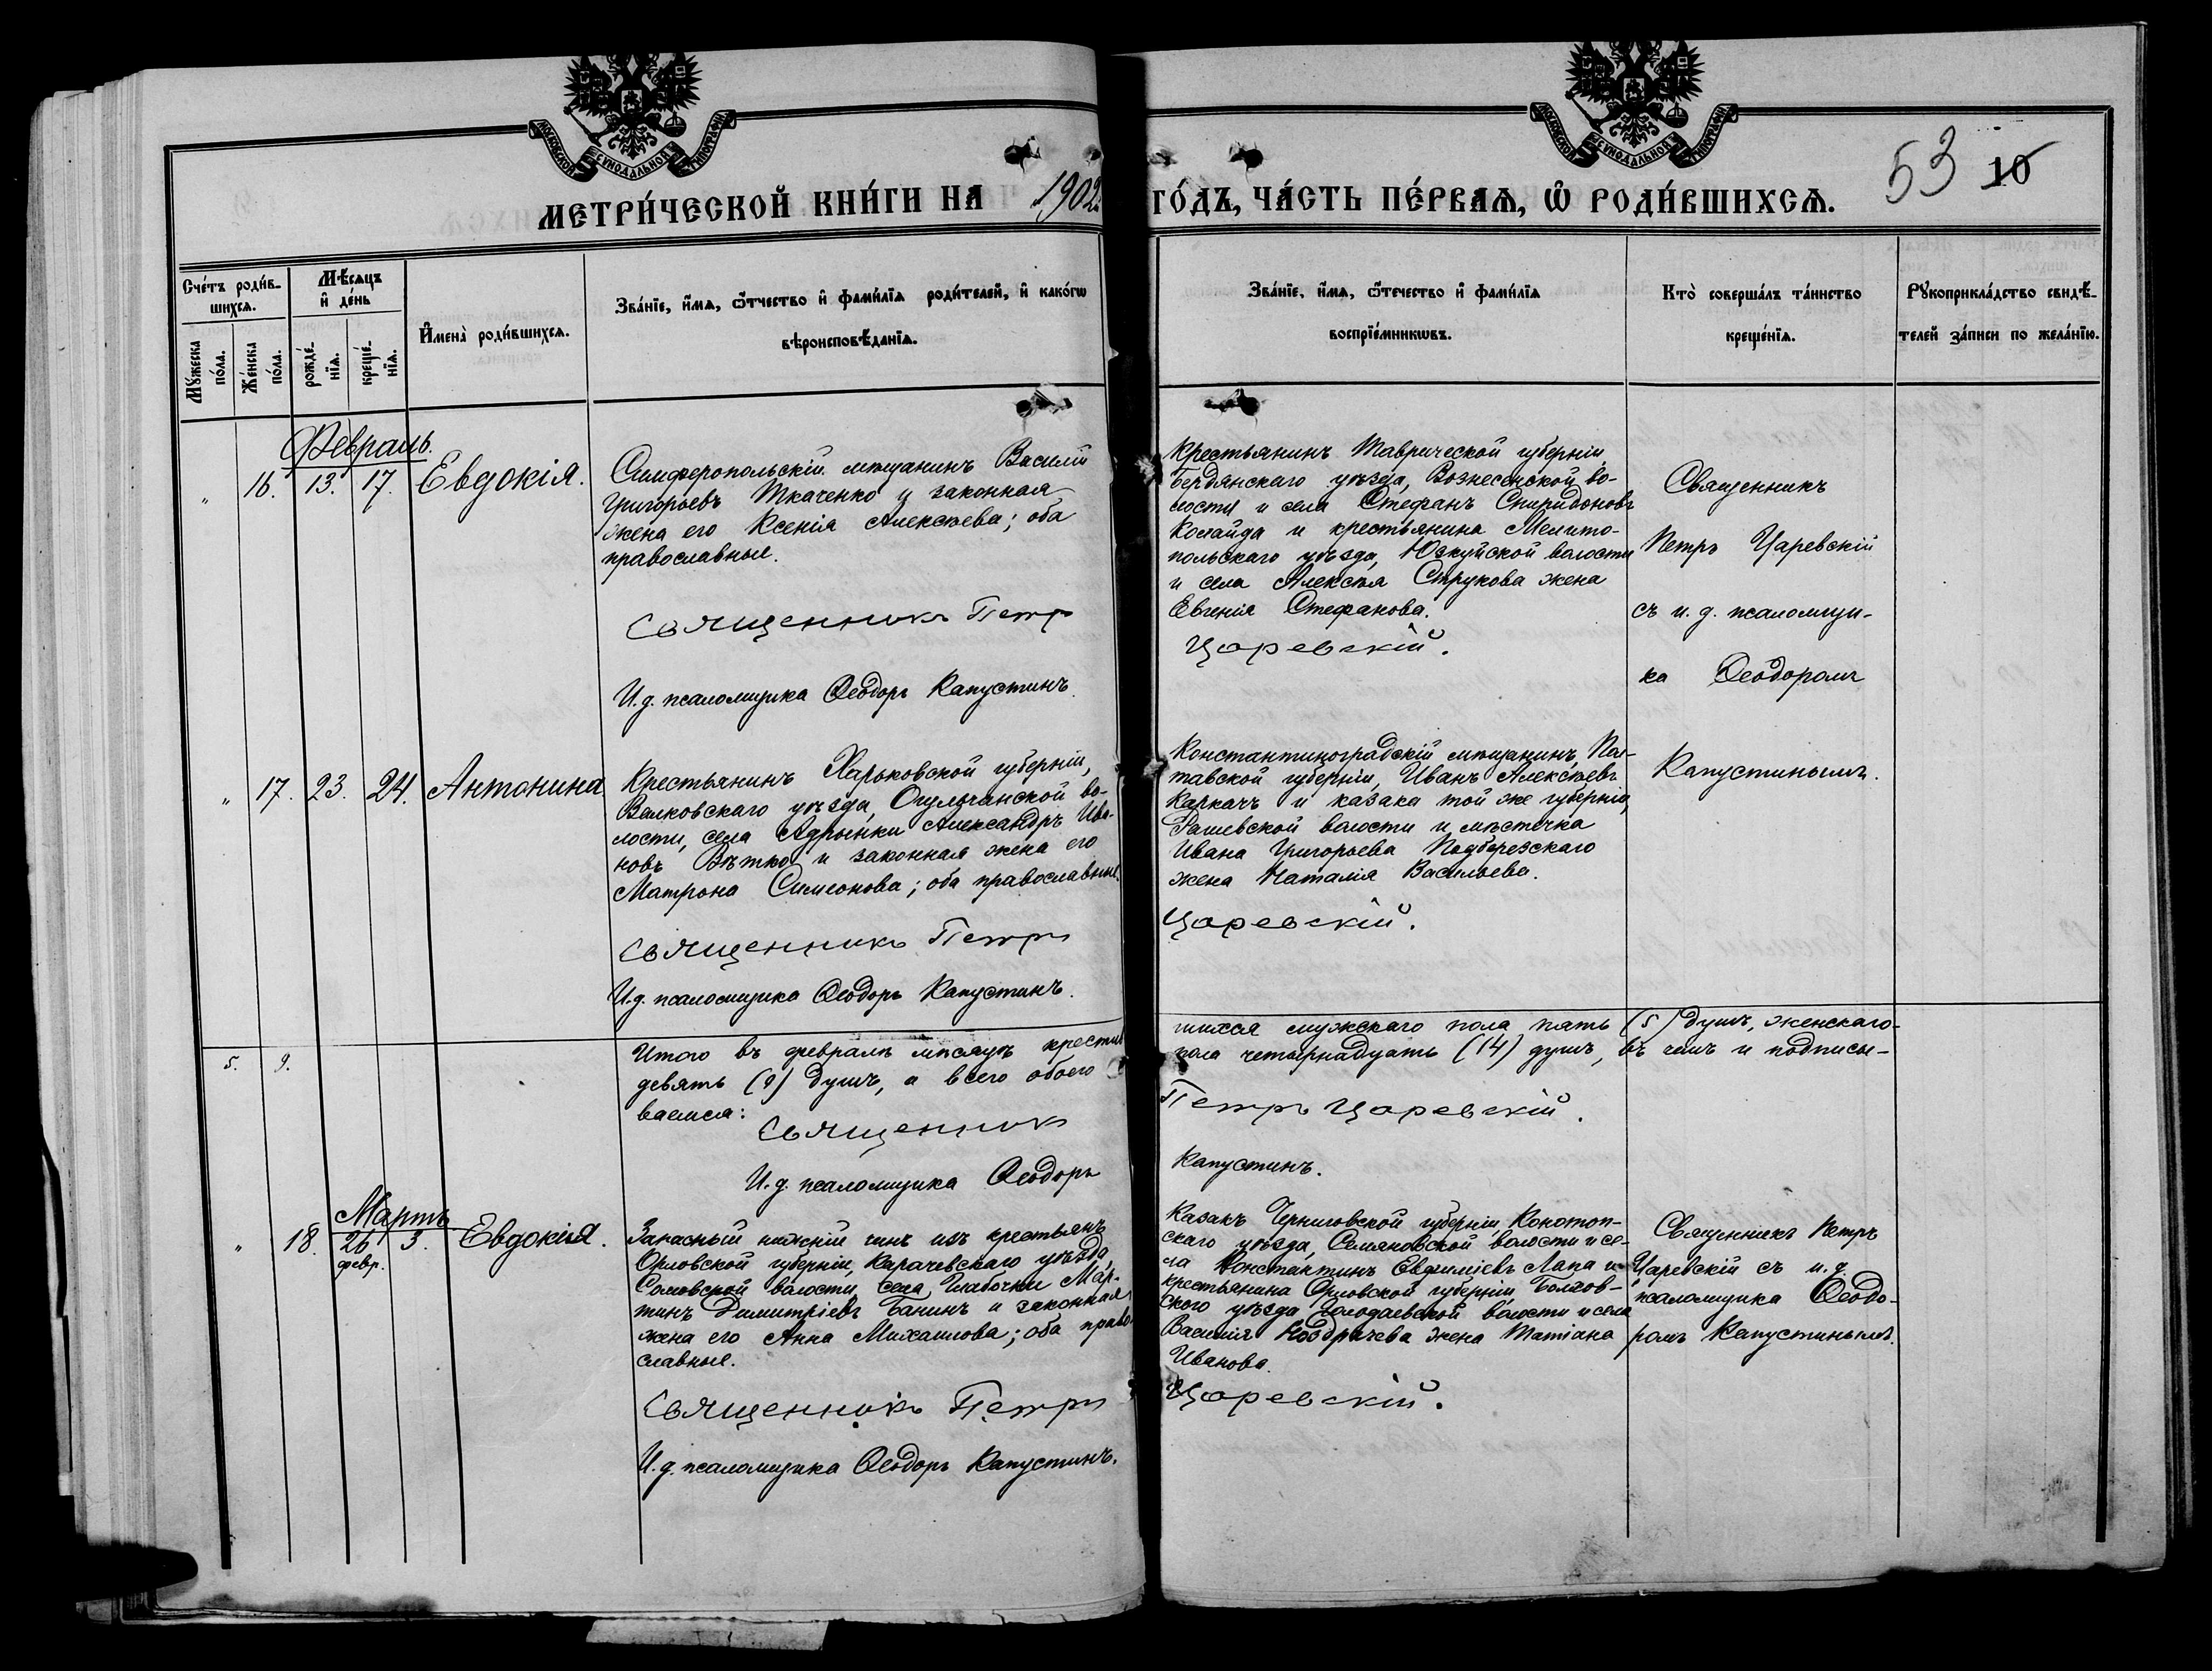 МОСКОВСКОЙ СѴНОДАЛЬНОЙ ТИПОГРАФІИ
МОСКОВСКОЙ СѴНОДАЛЬНОЙ ТИПОГРАФІИ
53 10
МЕТРИ́ЧЕСКОЙ КНИ́ГИ НА 1902 ГО́ДЪ, ЧА́СТЬ ПЕ́РВАѦ, Ѡ҆ РОДИ́ВШИХСѦ.
Сче́тъ роди́в-
шихсѧ.
Мѹ́жеска
по́ла.
Же́нска
по́ла.
Мѣ́сѧцъ
и҆ де́нь
рожде́-
нїѧ.
креще́-
нїѧ.
И҆мена̀ роди́вшихсѧ.
Зва́нїе, и҆́мѧ, ѻ҆́тчество и҆ фами́лїѧ роди́телей, и҆ како́гѡ
вѣроисповѣ́данїѧ.
Зва́нїе, и҆́мѧ, ѻ҆́течество и҆ фами́лїѧ
воспрїе́мникѡвъ.
Кто̀ соверша́лъ та́инство
креще́нїѧ.
Рѹкоприкла́дство свидѣ́-
телей за́писи по жела́нїю.
Февраль.
" 16. 13. 17. Евдокія.
Симферопольскій мѣщанинъ Василій
Григорьевъ Ткаченко и законная
жена его Ксенія Алексѣева; оба
православные.
Священникъ Петръ
И.д. псаломщика Ѳеодоръ Капустинъ.
Крестьянинъ Таврической губерніи
Бердянскаго уѣзда, Вознесенской во-
лости и села Стефанъ Спиридоновъ
Колайда и крестьянина Мелито-
польскаго уѣзда, Юзкуйской волости
и села Алексѣя Струкова жена
Евгенія Стефанова.
Царевскій.
Священникъ
Петръ Царевскій
съ и.д. псаломщи-
ка Ѳеодоромъ
Капустинымъ.
" 17. 23. 24. Антонина
Крестьянинъ Харьковской губерніи,
Валковскаго уѣзда, Огульчанской во-
лости, села Адрынки Александръ Ива-
новъ Вѣтко и законная жена его
Матрона Симеонова; оба православные.
Священникъ Петръ
И.д. псаломщика Ѳеодоръ Капустинъ.
Константиноградскій мѣщанинъ, Пол-
тавской губерніи, Иванъ Алексѣевъ
Каркачъ и казака той же губерніи,
Рашевской волости и мѣстечка
Ивана Григорьева Подберезскаго
жена Наталія Васильева.
Царевскій.
5. 9.
Итого въ февралѣ мѣсяцѣ крестив
шихся мужскаго пола пять (5) душъ, женскаго-
девять (9) душъ, а всего обоего
пола четырнадцать (14) душъ, въ чемъ и подписы-
ваемся:
Священникъ
Петръ Царевскій.
И.д. псаломщика Ѳеодоръ
Капустинъ.
Мартъ
" 18. 26 февр. 3. Евдокія.
Запасный нижній чинъ изъ крестьянъ
Орловской губерніи, Карачевскаго уѣзда,
Сомовской волости, села Глыбочки Мар-
тинъ Димитріевъ Банинъ и законная
жена его Анна Михаилова; оба право-
славные.
Священникъ Петръ
И.д. псаломщика Ѳеодоръ Капустинъ.
Казакъ Черниговской губерніи, Конотоп-
скаго уѣзда, Семяновской волости и се-
ла Константинъ Евфиміевъ Лапа и
крестьянина Орловской губерніи, Болхов-
ского уѣзда Голодаевской волости и села
Василія Ноздрачева жена Татіана
Иванова.
Царевскій.
Священникъ Петръ
Царевскій съ и.д.
псаломщика Ѳеодо-
ромъ Капустинымъ.